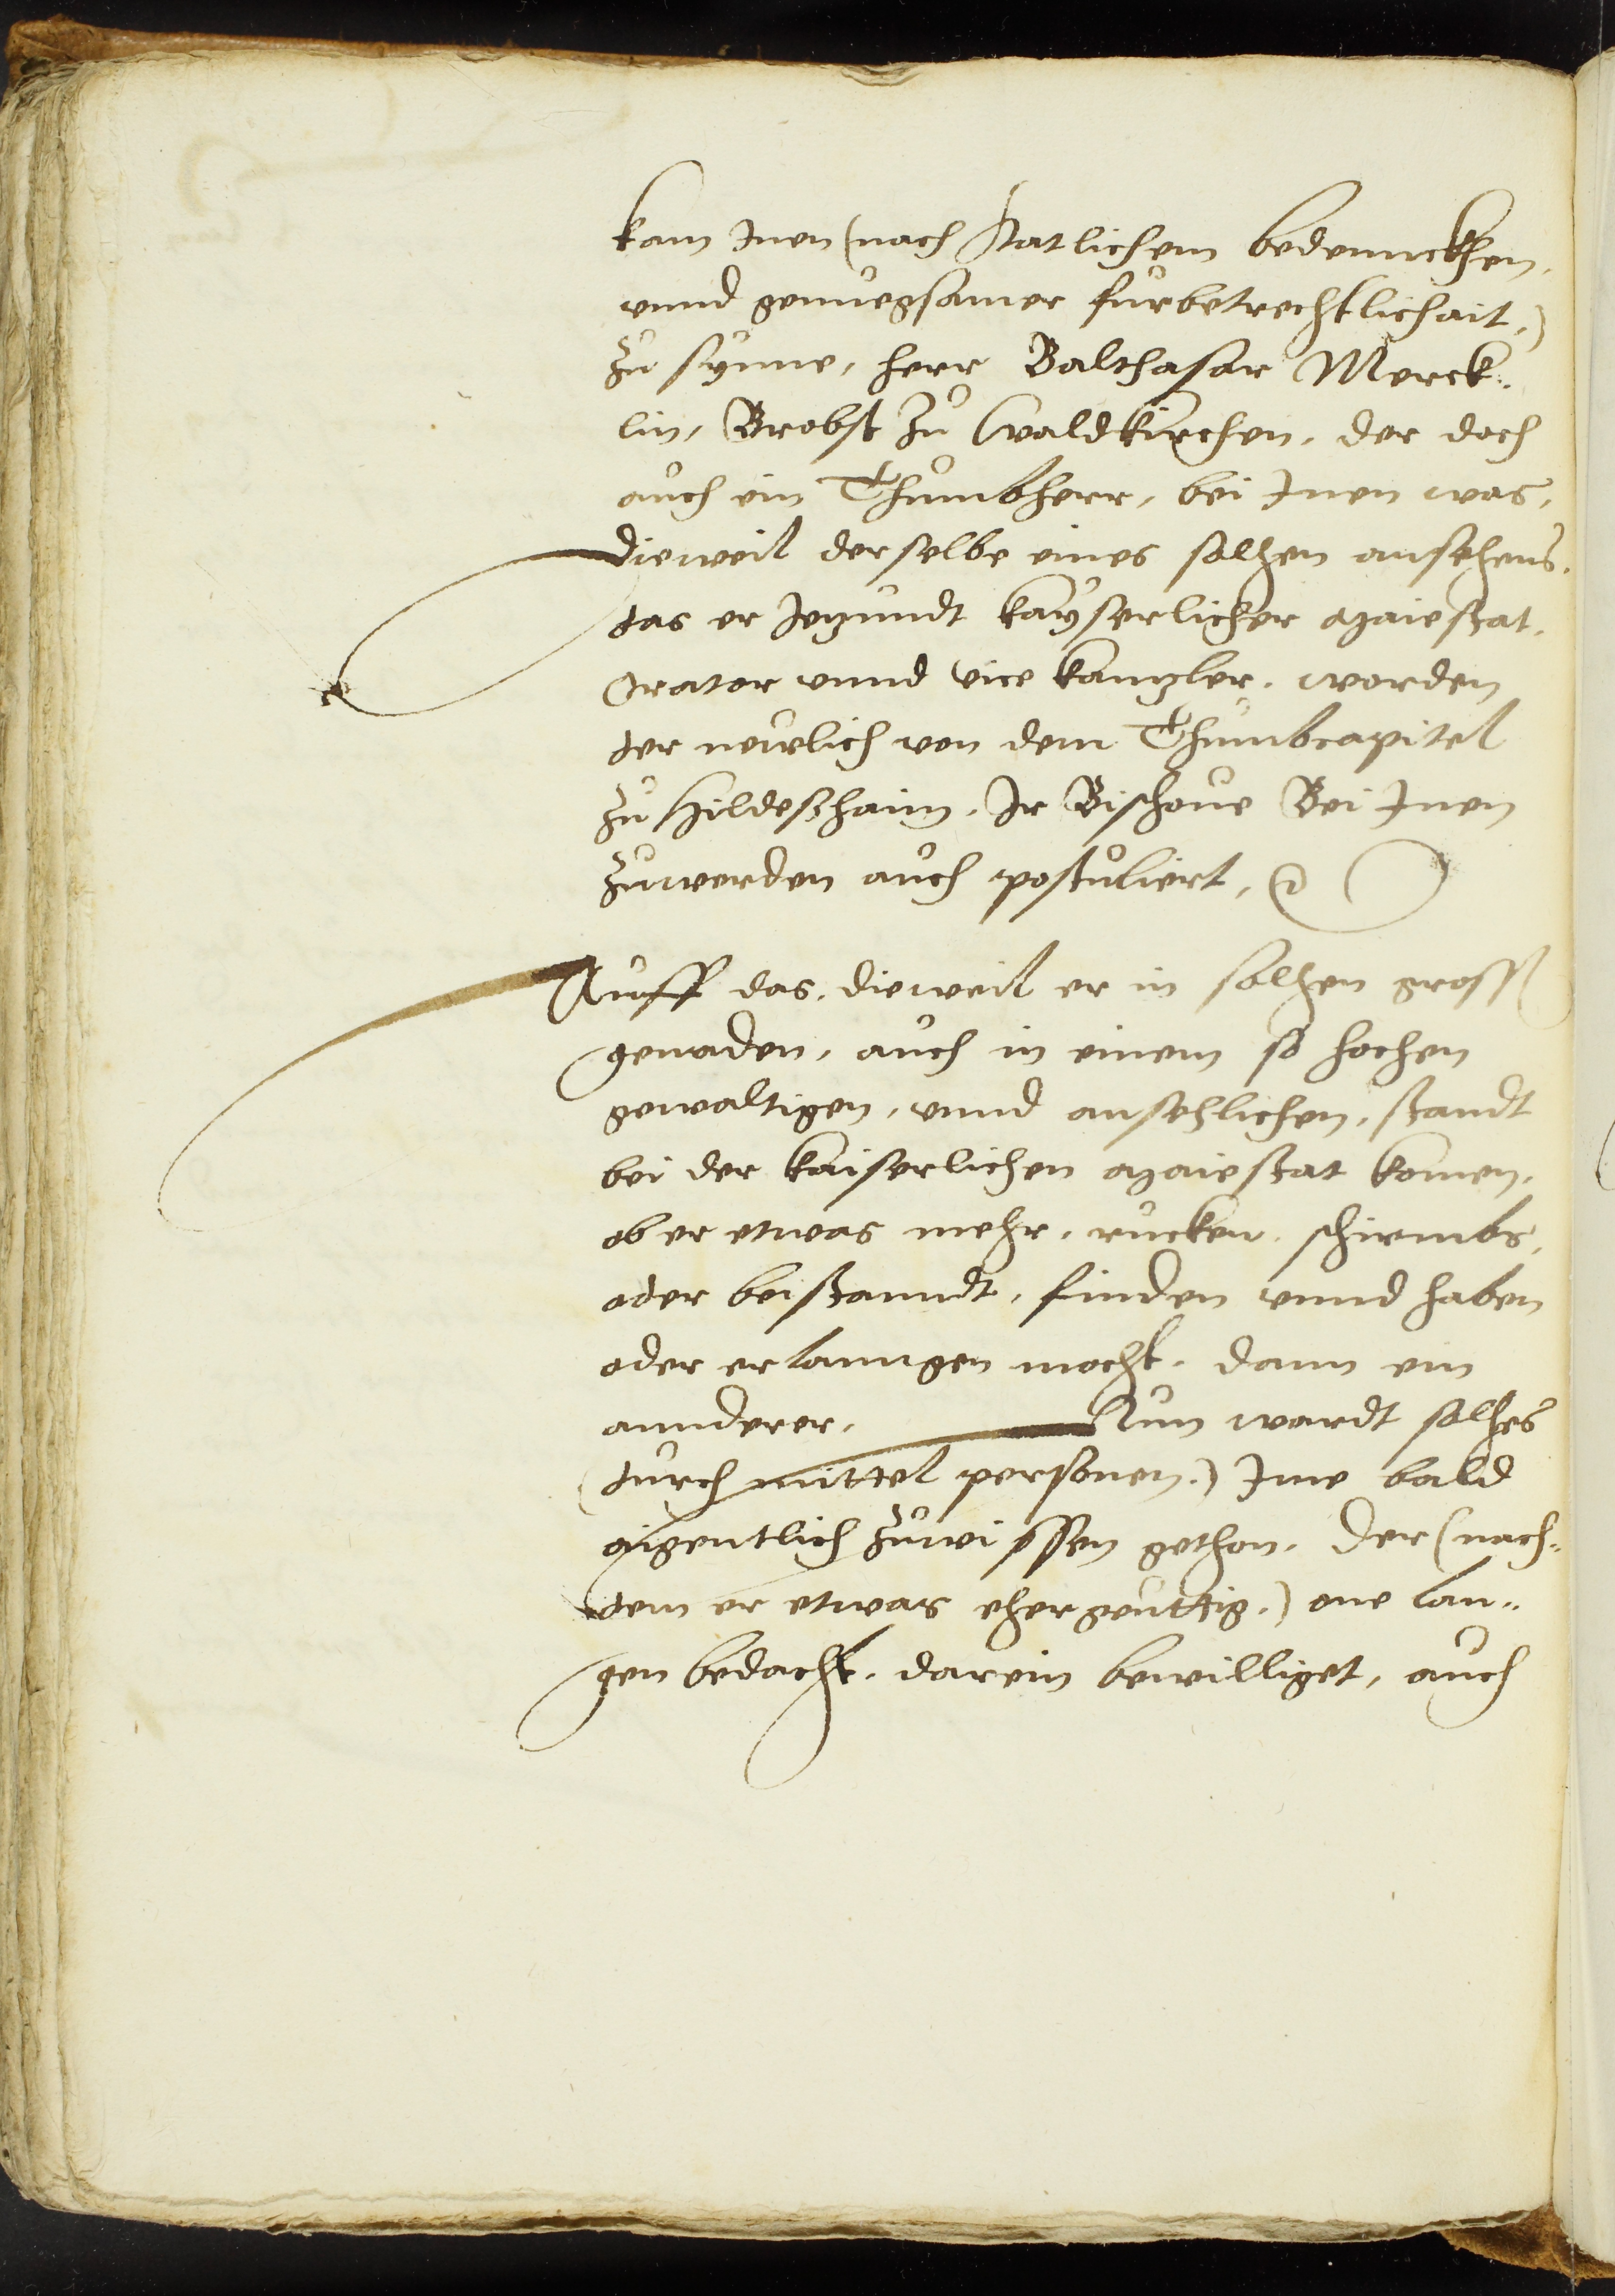 kam Inen (nach statlichem bedennckhen,
vnnd genuegsamer fürbetrechtlichait,)
zu synne, herr Balthasar Merck-
lin, Brobst zu Waldkirchen, der doch
auch ein Thumbherr, bei Inen was,
dieweil derselbe eines solhen ansehens,
das er Jezundt kayserlicher Maiestat,
Orator vnnd vice kanzler, worden
der newlich von dem Thumbcapitel
zu Hildeßhaim, Ir Bischoue Bei Inen
zuwerden auch postuliert,
Auff das, dieweil er in solhen gross
genaden, auch in einem so hochen
gewaltigen, vnnd ansehlichen, standt
bei der kaiserlichen Maiestat komen,
ob er etwas mehr, rucken, schirmbs,
oder beistanndt, finden vnnd haben
oder erlanngen mocht, dann ein
annderer, Nun wardt solhes
(durch mittel personen,) Ime bald
aigentlich zuwissen gethon, der (nach-
dem er etwas ehergeuttig,) one lan-
gen bedacht, darein bewilliget, auch